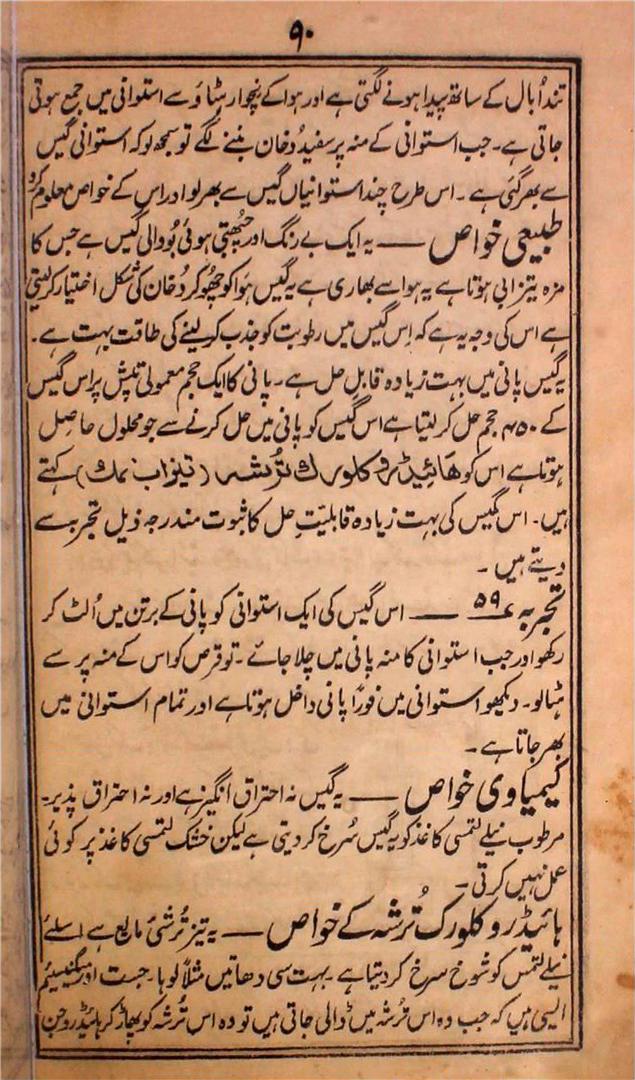 ۹۰
تند اُبال کے ساتھ پیدا ہونے لگتی ہے اور ہوا کے نیچوار ہٹاؤ سے استوانی میں جمع ہوتی
جاتی ہے۔ جب استوانی کے منہ پر سفید دُخان بننے لگے تو سمجھ لو کہ استوانی گیس
سے بھر گئی ہے۔ اس طرح چند استوانیاں گیس سے بھر لو اور اس کے خواص معلوم کرو
طبیعی خواص —— یہ ایک بے رنگ اور چُبھتی ہوئی بُو والی گیس ہے جس کا
مزہ تیزابی ہوتا ہے یہ ہوا سے بھاری ہے یہ گیس ہوا کو چھو کر دُخان کی شکل اختیار کر لیتی
ہے اس کی وجہ یہ ہے کہ اِس گیس میں رطوبت کو جذب کر لینے کی طاقت بہت ہے۔
یہ گیس پانی میں بہت زیادہ قابلِ حل ہے۔ پانی کا ایک حجم معمولی تپش پر اس گیس
کے ۴۵۰ حجم حل کر لیتا ہے اس گیس کو پانی میں حل کرنے سے جو محلول حاصل
ہوتا ہے اس کو ھائیڈروکلورک تُرشہ (تیزاب نمک) کہتے
ہیں۔ اس گیس کی بہت زیادہ قابلیّتِ حل کا ثبوت مندرجہ ذیل تجربہ سے
دیتے ہیں۔
تجربہ ۵۹ —— اس گیس کی ایک استوانی کو پانی کے برتن میں اُلٹ کر
رکھو اور جب استوانی کا منہ پانی میں چلا جائے۔ تو قرص کو اس کے منہ پر سے
ہٹا لو۔ دیکھو استوانی میں فوراً پانی داخل ہوتا ہے اور تمام استوانی میں
بھر جاتا ہے۔
کیمیاوی خواص —— یہ گیس نہ احتراق انگیز ہے اور نہ احتراق پذیر۔
مرطوب نیلے لتمسی کاغذ کو یہ گیس سُرخ کر دیتی ہے لیکن خشک لتمسی کاغذ پر کوئی
عمل نہیں کرتی۔
ہائیڈروکلورک تُرشہ کے خواص —— یہ تیز تُرشئی مایع ہے اسلئے
نیلے لتمس کو شوخ سرخ کر دیتا ہے۔ بہت سی دھاتیں مثلاً لوہا۔ جست اور میگنیسیئم
ایسی ہیں کہ جب وہ اس تُرشہ میں ڈالی جاتی ہیں تو وہ اس تُرشہ کو پھاڑ کر ہائیڈروجن